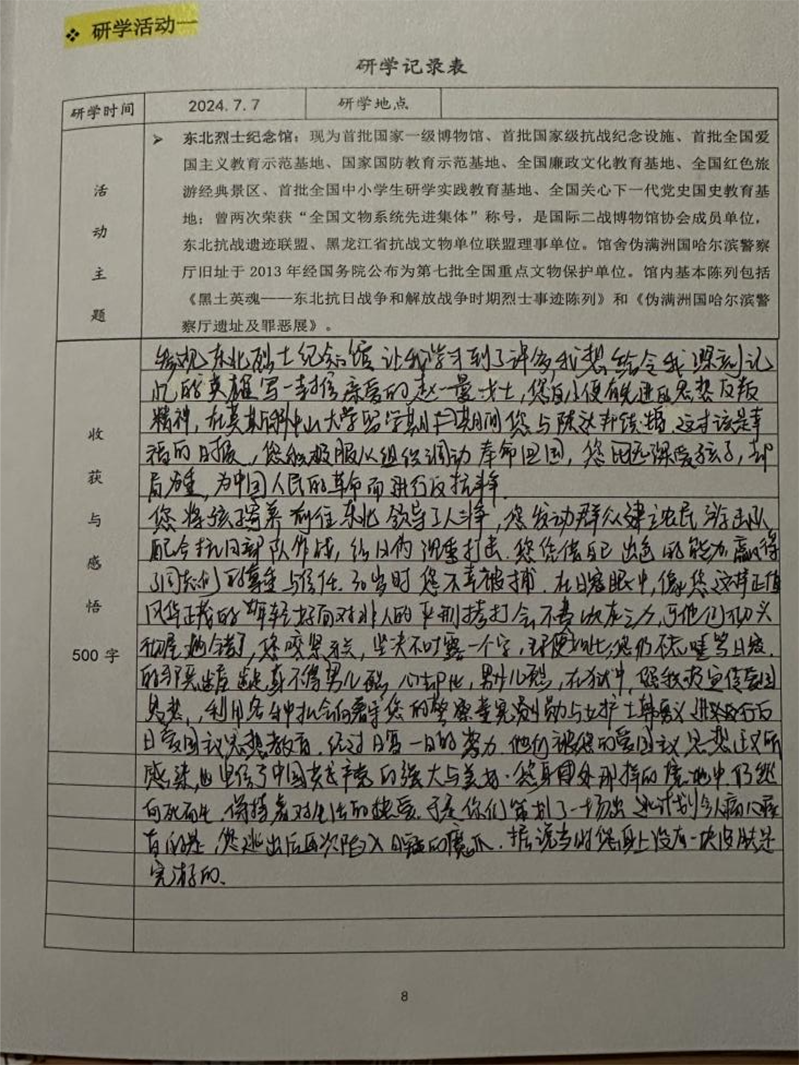 ❖ 研学活动一
研学记录表
研学时间 2024.7.7 研学地点
活动主题
➢ 东北烈士纪念馆：现为首批国家一级博物馆、首批国家级抗战纪念设施、首批全国爱
国主义教育示范基地、国家国防教育示范基地、全国廉政文化教育基地、全国红色旅
游经典景区、首批全国中小学生研学实践教育基地、全国关心下一代党史国史教育基
地；曾两次荣获“全国文物系统先进集体”称号，是国际二战博物馆协会成员单位，
东北抗战遗迹联盟、黑龙江省抗战文物单位联盟理事单位。馆舍伪满洲国哈尔滨警察
厅旧址于 2013 年经国务院公布为第七批全国重点文物保护单位。馆内基本陈列包括
《黑土英魂——东北抗日战争和解放战争时期烈士事迹陈列》和《伪满洲国哈尔滨警
察厅遗址及罪恶展》。
收获与感悟
500 字
参观东北烈士纪念馆 让我学习到了许多，我想给令我深刻记
忆的英雄写一封信 亲爱的赵一曼女士，您自小便有先进的思想 反叛
精神，在莫斯科中山大学留学期间 您与陈达邦结婚，这本该是幸
福的日子，您积极服从组织调动 奉命回国，您深爱孩子，却
为中国人民的革命而进行反抗斗争.
您将孩子寄养 前往东北 领导工人斗争，您发动群众建立农民游击队
配合抗日部队作战，给日伪沉重打击. 您凭借自己出色的能力赢得
了同志们的尊重与信任. 30岁时您不幸被捕. 在日寇眼中，像您这样正值
风华正茂的年轻 面对非人的 拷打会不
您咬紧牙关，坚决不吐露一个字，
的 身不得男儿列 心却比，男儿烈，在狱中，您积极宣传爱国
思想，利用各种机会向看守您的警察董宪勋与女护士韩勇义进行反
日爱国主义思想教育. 经过日复一日的努力 他们被您的爱国主义思想所
感染，也坚信了中国共产党的强大与美好. 您身 那样的 地中仍然
向死而生，保持着对生活的热爱. 于是你们策划了一场出逃计划 令人痛心
的是，您逃出后再次陷入日寇的魔爪. 据说当时您身上没有一块皮肤是
完好的.
8